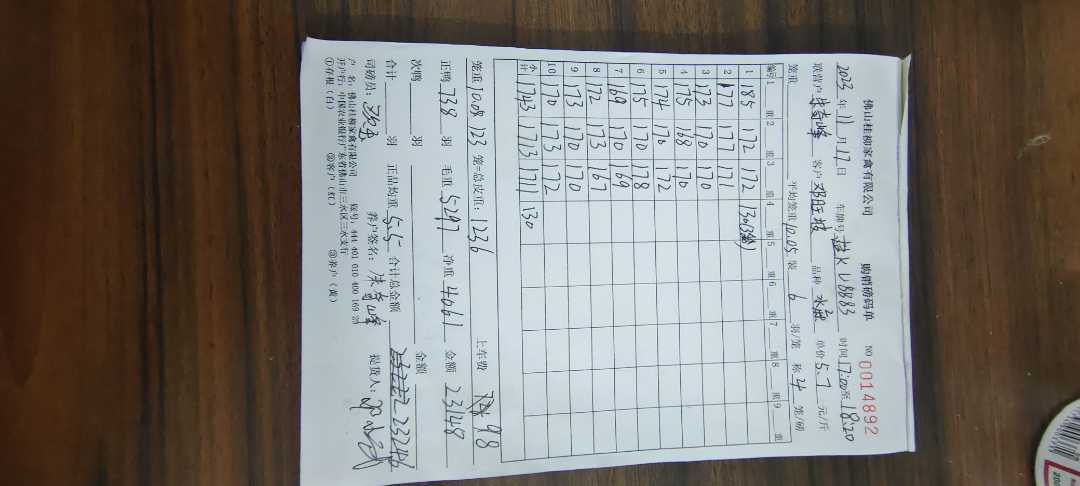 佛山桂柳家禽有限公司 购销磅码单 NO 0014892
2023年11月17日 车牌号 桂K U8883 时间17:00至18:20
联营户 客户 邓旺 品种 水 单价5.7元/斤
笼重 平均笼重10.05 装6羽/笼 称4笼/磅
编号 1 重 2 重 3 重 4 重 5 重 6 重 7 重 8 重 9 重
1 185 172 172 130(3笼)
2 177 177 171
3 173 170 170
4 175 168 170
5 174 170 172
6 175 170 178
7 169 170 169
8 172 173 167
9 173 170 170
10 170 173 172
小计 1743 1713 1711 130
笼重10.05 123笼=总皮重:1236 上车费 98
正鸭738羽 毛重5297 净重4061 金额23148
次鸭 羽 金额
合计 羽 正品均重5.5 合计总金额 23246
司磅员: 养户签名: 提货人:
户 名:佛山桂柳家禽有限公司 账号:444 401 010 400 169 29
开户行:中国农业银行广东省佛山市三水区三水支行
①存根(白) ②客户(红) ③养户(黄)